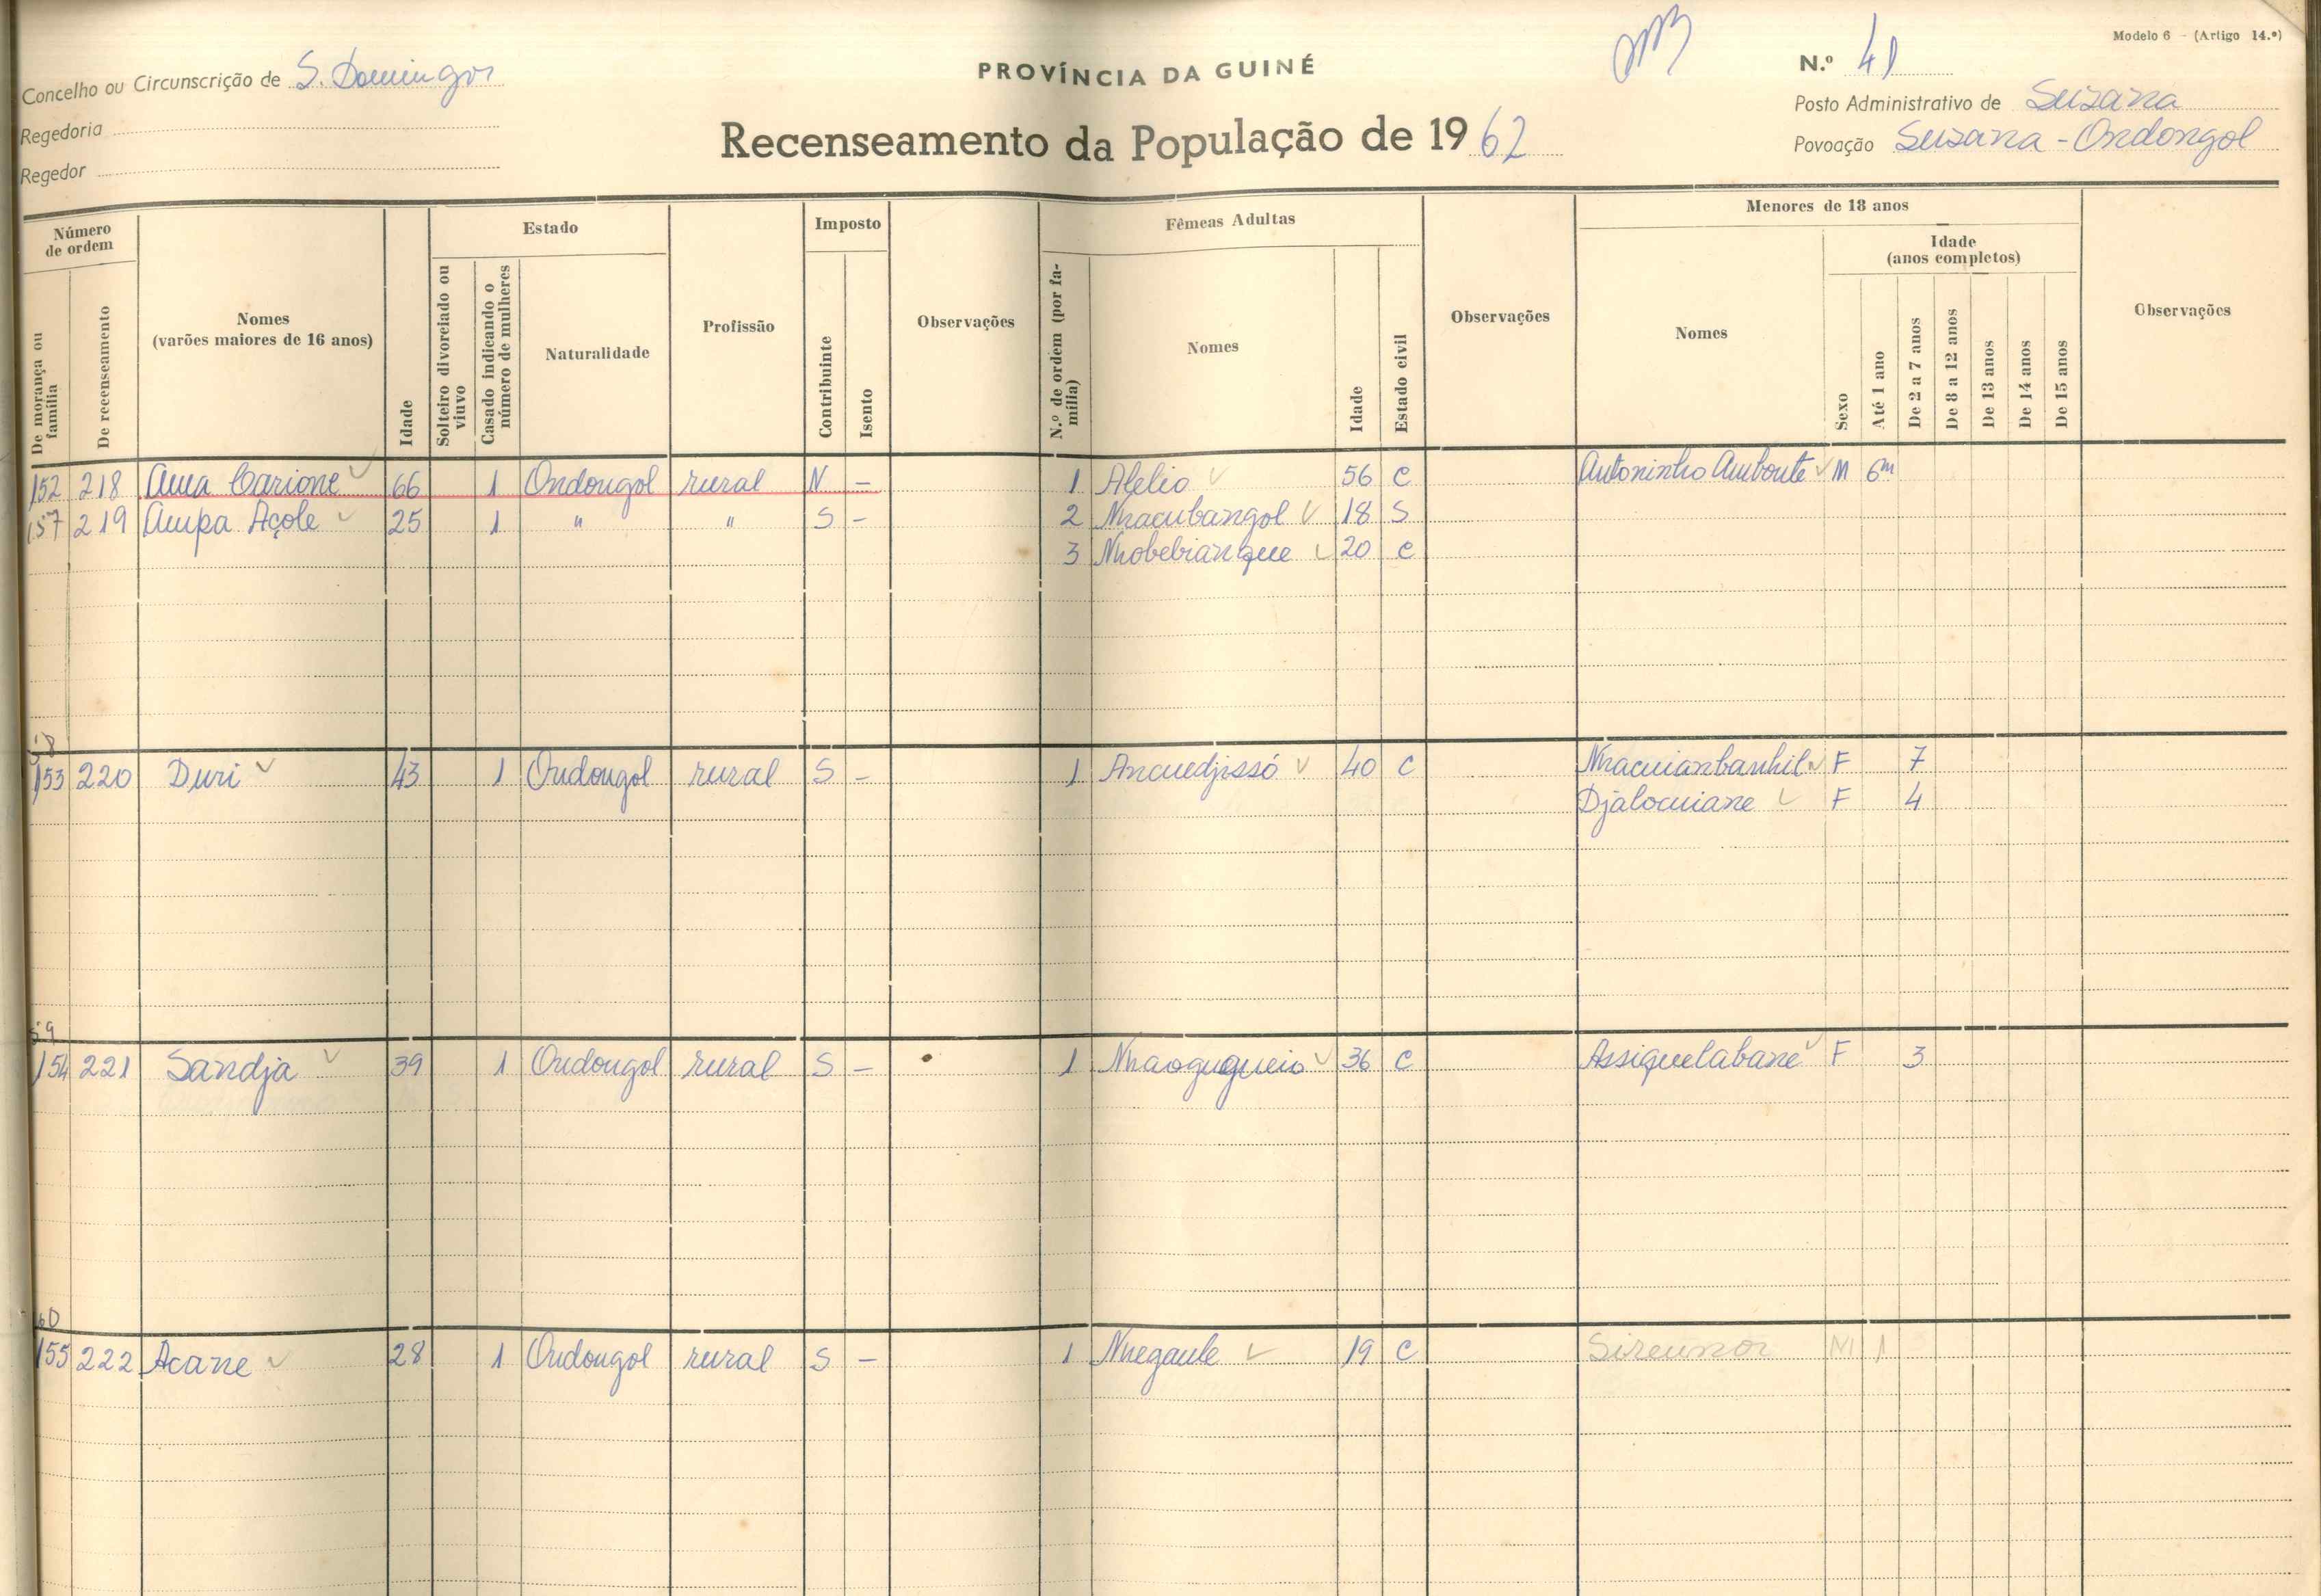 Modelo 6 - (Artigo 14.º)
Concelho ou Circunscrição de S. Domingos
PROVÍNCIA DA GUINÉ
N.º 41
Regedoria
Posto Administrativo de Suzana
Recenseamento da População de 1962
Regedor
Povoação Suzana - Ondongol
Número de ordem
De morança ou família
De recenseamento
Nomes
(varões maiores de 16 anos)
Idade
Estado
Solteiro divorciado ou viuvo
Casado indicando o número de mulheres
Naturalidade
Profissão
Imposto
Contribuinte
Isento
Observações
Fêmeas Adultas
N.º de ordem (por família)
Nomes
Idade
Estado civil
Observações
Menores de 18 anos
Nomes
Sexo
Idade
(anos completos)
Até 1 ano
De 2 a 7 anos
De 8 a 12 anos
De 13 anos
De 14 anos
De 15 anos
Observações
152 218 Ama Carione 66 1 Ondongol rural N - 1 Alelio 56 C Antoninho Amboute M 6m
157 219 Ampa Açole 25 1 " " S - 2 Nhacubangol 18 S
3 Nhobebianque 20 C
58
153 220 Duri 43 1 Ondongol rural S - 1 Ancuedjissó 40 C Nhacuianbanhil F 7
Djalocuiane F 4
59
154 221 Sandja 39 1 Ondongol rural S - 1 36 C Assiquelabane F 3
60
155 222 Acane 28 1 Ondongol rural S - 1 Nhegaule 19 C Sireunor M 1